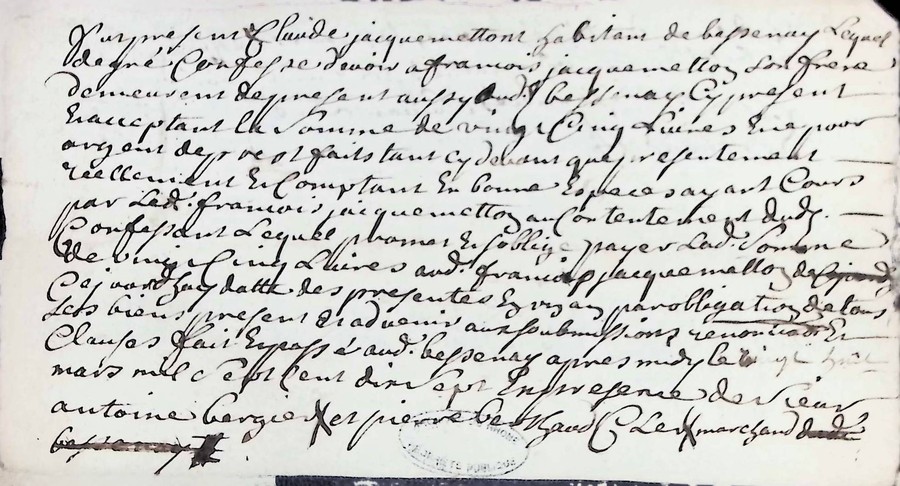 Fut present Claude jacquemettont habitant de bessenay Lequel
de gré Confesse devoir a francois jacquemetton son frere
demeurent de present aussy aud. bessenay Cy present
Et acceptant la Somme de vingt Cinq Livres En et pour
argent de prest faits tant cy devant que presentement
reellement Et Comptant En bonne Espece ayant Cours
par Led. francois jacquemetton au Contentement dud.
Confessant Lequel promet Et soblige payer Lad. Somme
de vingt Cinq Livres aud. francois jacquemetton
Cejourdhuy datte des presentes En un an par obligation de tous
Ses biens present Et advenir aux soubmissions renonciaon Et
Clauses fait Et passé aud. bessenay apres midy le vingt huit
mars mil Sept Cent dix Sept En presence de Sieur
antoine bergier et pierre berthaud Clerc marchand dud.
bessenay